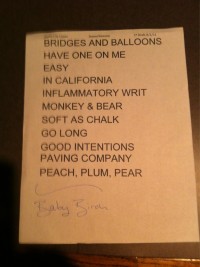 BRIDGES AND BALLOONS
HAVE ONE ON ME
EASY
IN CALIFORNIA
INFLAMMATORY WRIT
MONKEY & BEAR
SOFT AS CHALK
GO LONG
GOOD INTENTIONS
PAVING COMPANY
PEACH, PLUM, PEAR
Baby Birch